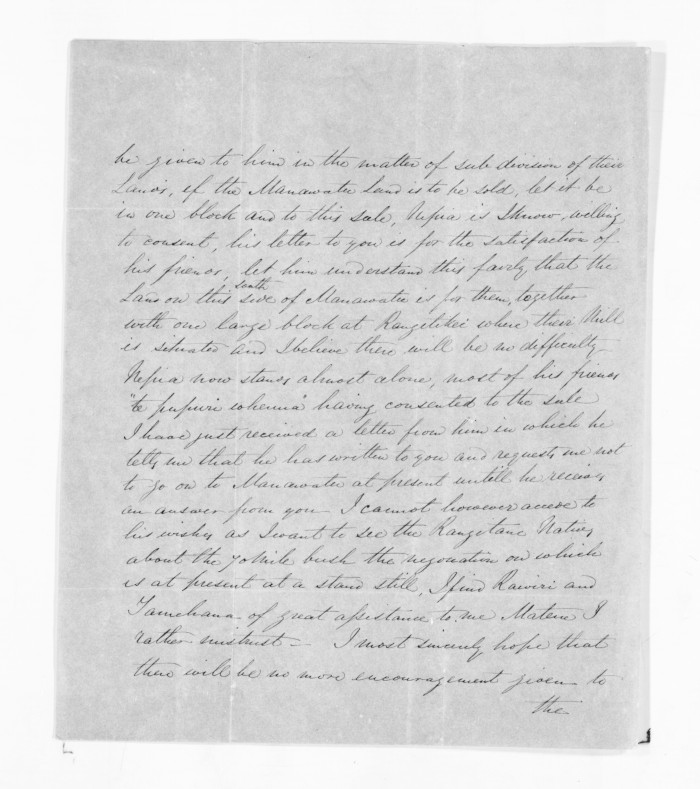 be given to him in the matter of sub division of their
Lands, if the Manawatu land is to be sold, let it be
in one block and to this sale, Nepia is I know, willing
to consent, his letter to you is for the satisfaction of
his friends, let him understand this fairly that the
Land on this south side of Manawatu is for them, together
with one large block at Rangitikei where their Mill
is situated and I believe there will be no difficulty
Nepia now stands almost alone, most of his friends
"te pupuri whenua" having consented to the sale
I have just received a letter from him in which he
tells me that he has written to you and requests me not
to go on to Manawatu at present untill he receives
an answer from you I cannot however accede to
his wishes as I want to see the Rangitane Natives
about the 70 Mile bush the negotiation on which
is at present at a stand still, I find Rawiri and
Tamehana of great assistance to me Matene I
rather mistrust – I most sincerely hope that
there will be no more encouragement given to
the